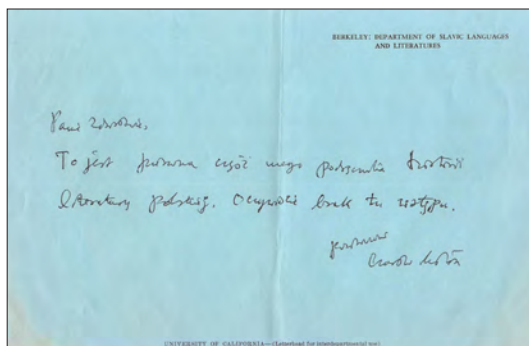 BERKELEY: DEPARTMENT OF SLAVIC LANGUAGES
AND LITERATURES
To jest pierwsza część mego podręcznika historii
literatury polskiej. Oczywiście brak tu wstępu.
UNIVERSITY OF CALIFORNIA—(Letterhead for interdepartmental use)